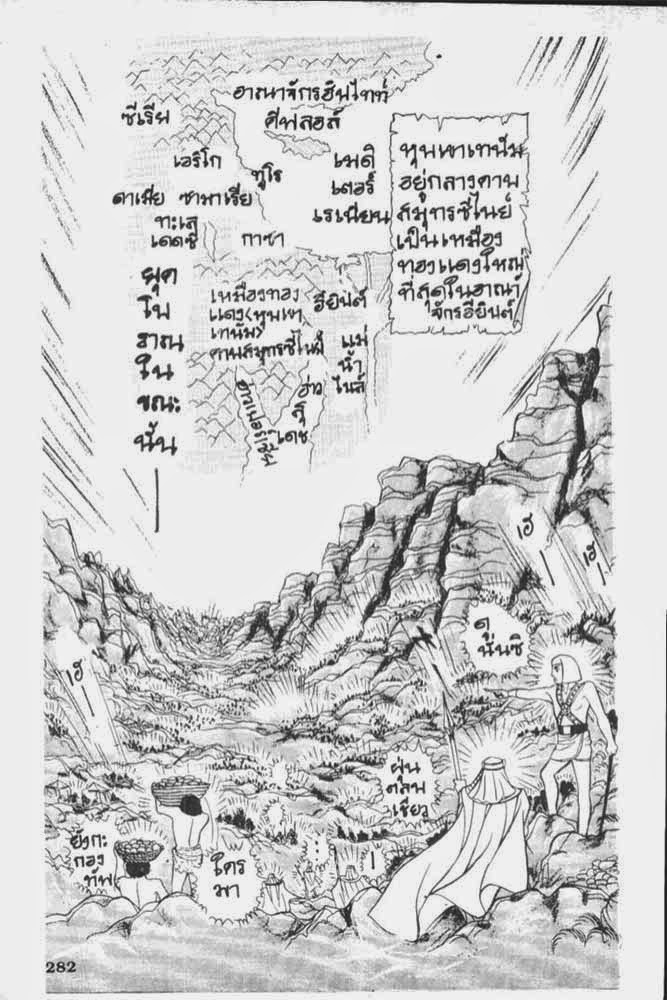 อาณาจักรฮิปไทท์
ซีเรีย
คีปลอส์
เอริโก
ทูโร
เมดิ
เตอร์
เรเนียน
ดาเมีย ซามาเรีย
ทะเล
เดดซี
กาซา
หุบเขาเทนัม
อยู่กลางคาบ
สมุทรซีไนย์
เป็นเหมือง
ทองแดงใหญ่
ที่สุดในอาณา
จักรอียิบต์
ยุค
โบ
ราณ
ใน
ขณะ
นั้น
เหมืองทอง
แดง(หุบเขา
เทนัม)
คาบสมุทรซีไนย์
อียิบต์
แม่
น้ำ
ไนล์
อ่าว
เดซ
เฮ้
เฮ้
เฮ้
ดู
นั่นซิ
ฝุ่น
ตลบ
เชียว
ยังกะ
กอง
ทัพ
ใคร
มา
...
!
282